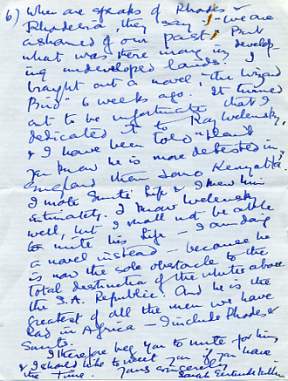 6) When one speaks of Rhodes &
Rhodesia, they say "we are
ashamed of our past." But
what was there wrong in develop-
ing undeveloped lands? I
brought out a novel, "the Wizard
Bird" 6 weeks ago. It turned
out to be unfortunate that I
dedicated it to Roy Welensky,
& I have been told "blank
you know he is more detested in
England than Jomo Kenyatta.
I wrote Smuts' life & I knew him
intimately. I know Welensky
well, but I shall not be able
to write his life - I am doing
a novel instead - because he
is now the sole obstacle to the
total destruction of the whites above
the S.A. Republic. And he is the
greatest of all the men we have
had in Africa - I include Rhodes &
Smuts.
I therefore beg you to write for him
& I should like to meet you if you have
the time. Yours sincerely
Sarah Gertrude Millin